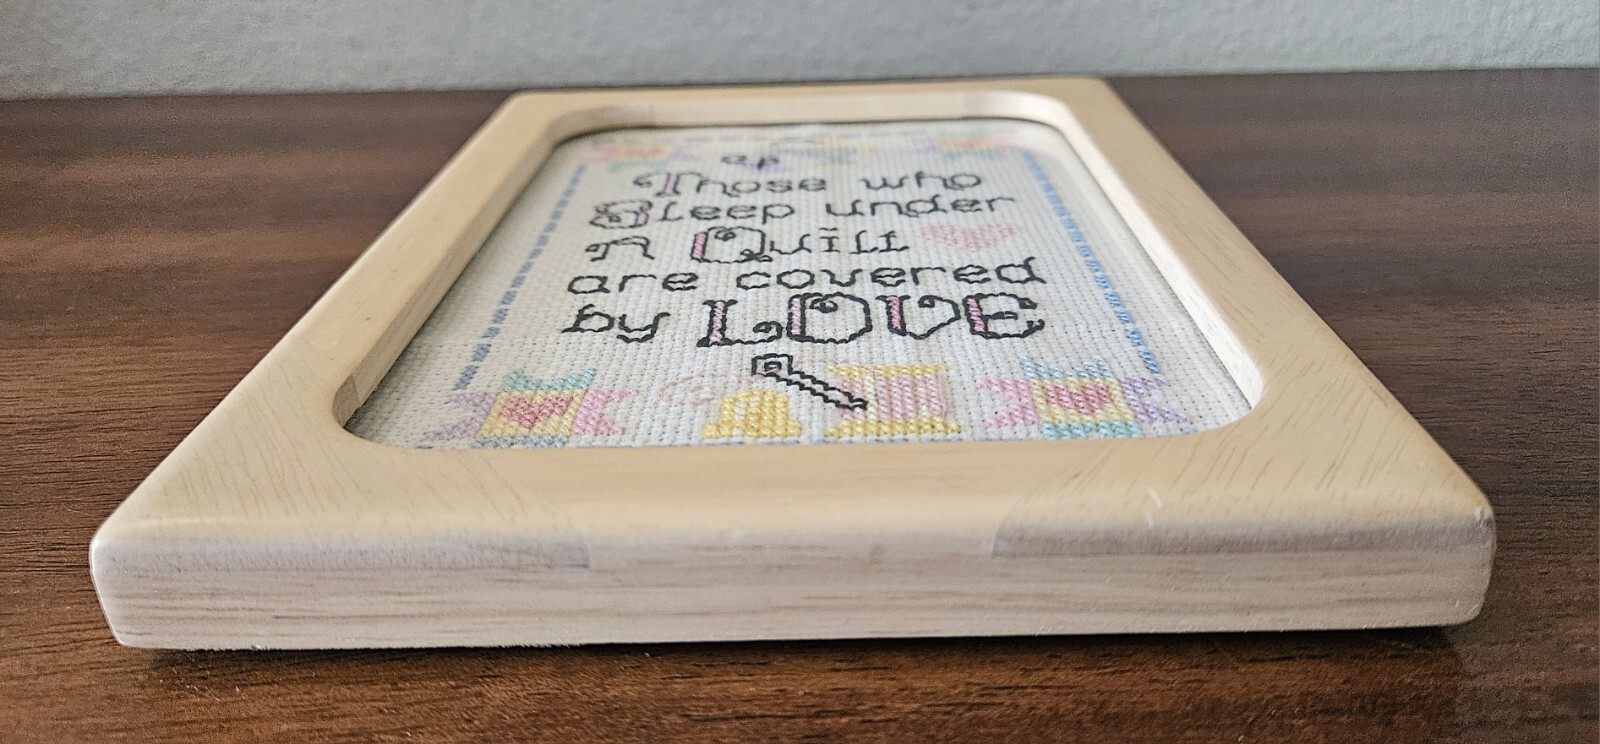 Those who
Sleep under
A Quilt
are covered
by LOVE